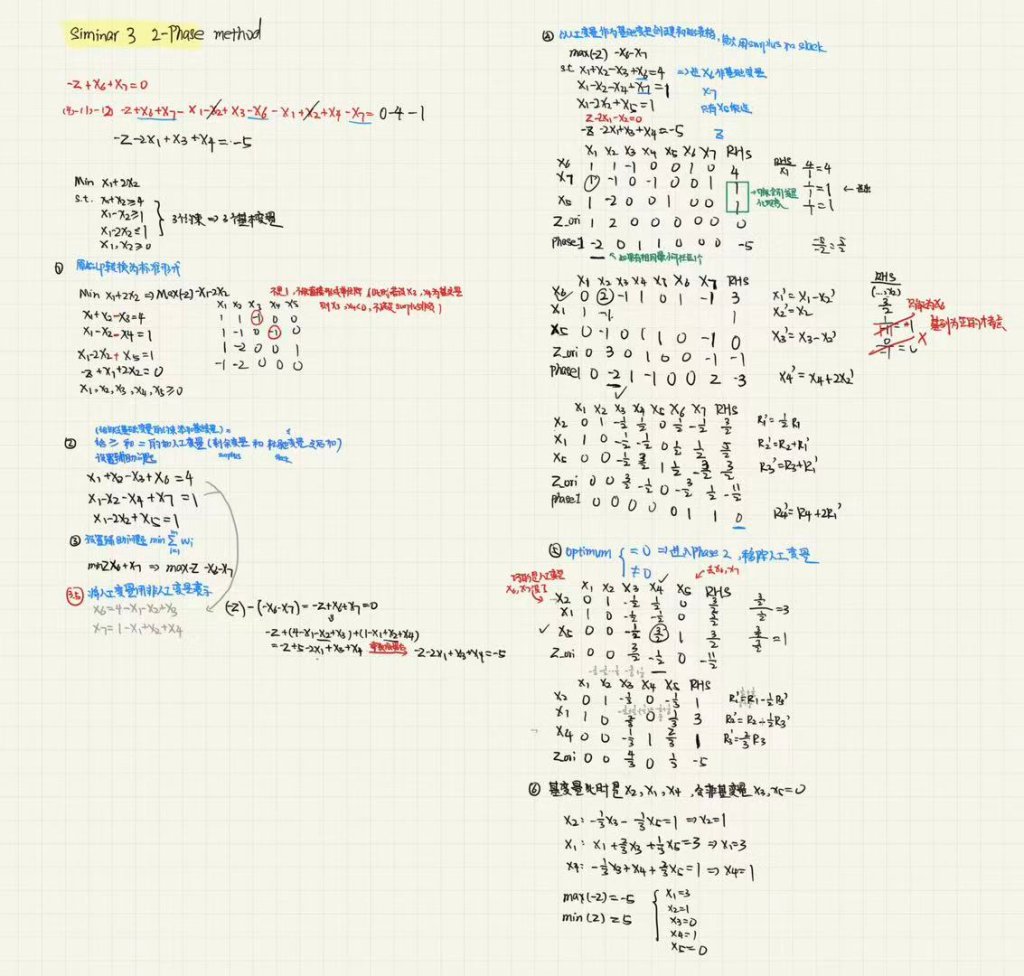 Siminar 3 2-Phase method
-Z+X6+X7=0
-Z+X6+X7-X1-X2+X3-X6-X1+X2+X4-X7=0-4-1
-Z-2X1+X3+X4=-5
Min X1+2X2
s.t. X1+X2≥4
X1-X2≥1
X1-2X2≤1
X1,X2≥0
3个约束⇒3个基本变量
① 原始LP转换为标准形式
Min X1+2X2⇒Max(-Z)-X1-2X2
X1+X2-X3=4
X1-X2-X4=1
X1-2X2+X5=1
-Z+X1+2X2=0
X1,X2,X3,X4,X5≥0
X1 X2 X3 X4 X5
1 1 -1 0 0
1 -1 0 -1 0
1 -2 0 0 1
-1 -2 0 0 0
②
设置辅助问题
X1+X2-X3+X6=4
X1-X2-X4+X7=1
X1-2X2+X5=1
③ 设置辅助问题 min Σ Wi
minZ X6+X7 ⇒ max-Z -X6-X7
3.5 将人工变量用非人工变量表示
X6=4-X1-X2+X3
X7=1-X1+X2+X4
(-Z)-(-X6-X7)=-Z+X6+X7=0
-Z+(4-X1-X2+X3)+(1-X1+X2+X4)
=-Z+5-2X1+X3+X4
-Z-2X1+X3+X4=-5
④
max(-Z) -X6-X7
s.t. X1+X2-X3+X6=4 ⇒选X6作基础变量
X1-X2-X4+X7=1 X7
X1-2X2+X5=1
-Z-2X1+X3+X4=-5
X1 X2 X3 X4 X5 X6 X7 RHS
X6 1 1 -1 0 0 1 0 4
X7 1 -1 0 -1 0 0 1 1
X5 1 -2 0 0 1 0 0 1
Z_ori 1 2 0 0 0 0 0 0
Phase1 -2 0 1 1 0 0 0 -5
RHS/X1 4/1=4
1/1=1
1/1=1
X1 X2 X3 X4 X5 X6 X7 RHS
X6 0 2 -1 1 0 1 -1 3
X1 1 -1 1
X5 0 -1 0 1 1 0 -1 0
Z_ori 0 3 0 1 0 0 -1 -1
Phase1 0 -2 1 -1 0 0 2 -3
X1'=X1-X2'
X2'=X2
X3'=X3-X2'
X4'=X4+2X2'
X1 X2 X3 X4 X5 X6 X7 RHS
X2 0 1 -1/2 1/2 0 1/2 -1/2 3/2
X1 1 0 -1/2 -1/2 0 1/2 1/2 5/2
X5 0 0 -1/2 3/2 1 1/2 -3/2 3/2
Z_ori 0 0 3/2 -1/2 0 -3/2 1/2 -11/2
phase1 0 0 0 0 0 1 1 0
R1'=1/2R1
R2'=R2+R1'
R3'=R3+R1'
R4'=R4+2R1'
⑤ optimum { =0 ⇒进入Phase 2,移除人工变量
≠0
去X6,X7
X1 X2 X3 X4 X5 RHS
X2 0 1 -1/2 1/2 0 3/2
X1 1 0 -1/2 -1/2 0 5/2
X5 0 0 -1/2 3/2 1 3/2
Z_ori 0 0 3/2 -1/2 0 -11/2
=3
=1
X1 X2 X3 X4 X5 RHS
X2 0 1 -1/3 0 -1/3 1
X1 1 0 -2/3 0 1/3 3
X4 0 0 -1/3 1 2/3 1
Z_ori 0 0 4/3 0 1/3 -5
R1'=R1-1/2R3'
R2'=R2+1/2R3'
R3'=2/3R3
⑥ 基变量此时是X2,X1,X4,令非基变量X3,X5=0
X2: -1/3X3-1/3X5=1⇒X2=1
X1: X1+2/3X3+1/3X5=3⇒X1=3
X4: -1/3X3+X4+2/3X5=1⇒X4=1
max(-Z)=-5
min(Z)=5
X1=3
X2=1
X3=0
X4=1
X5=0